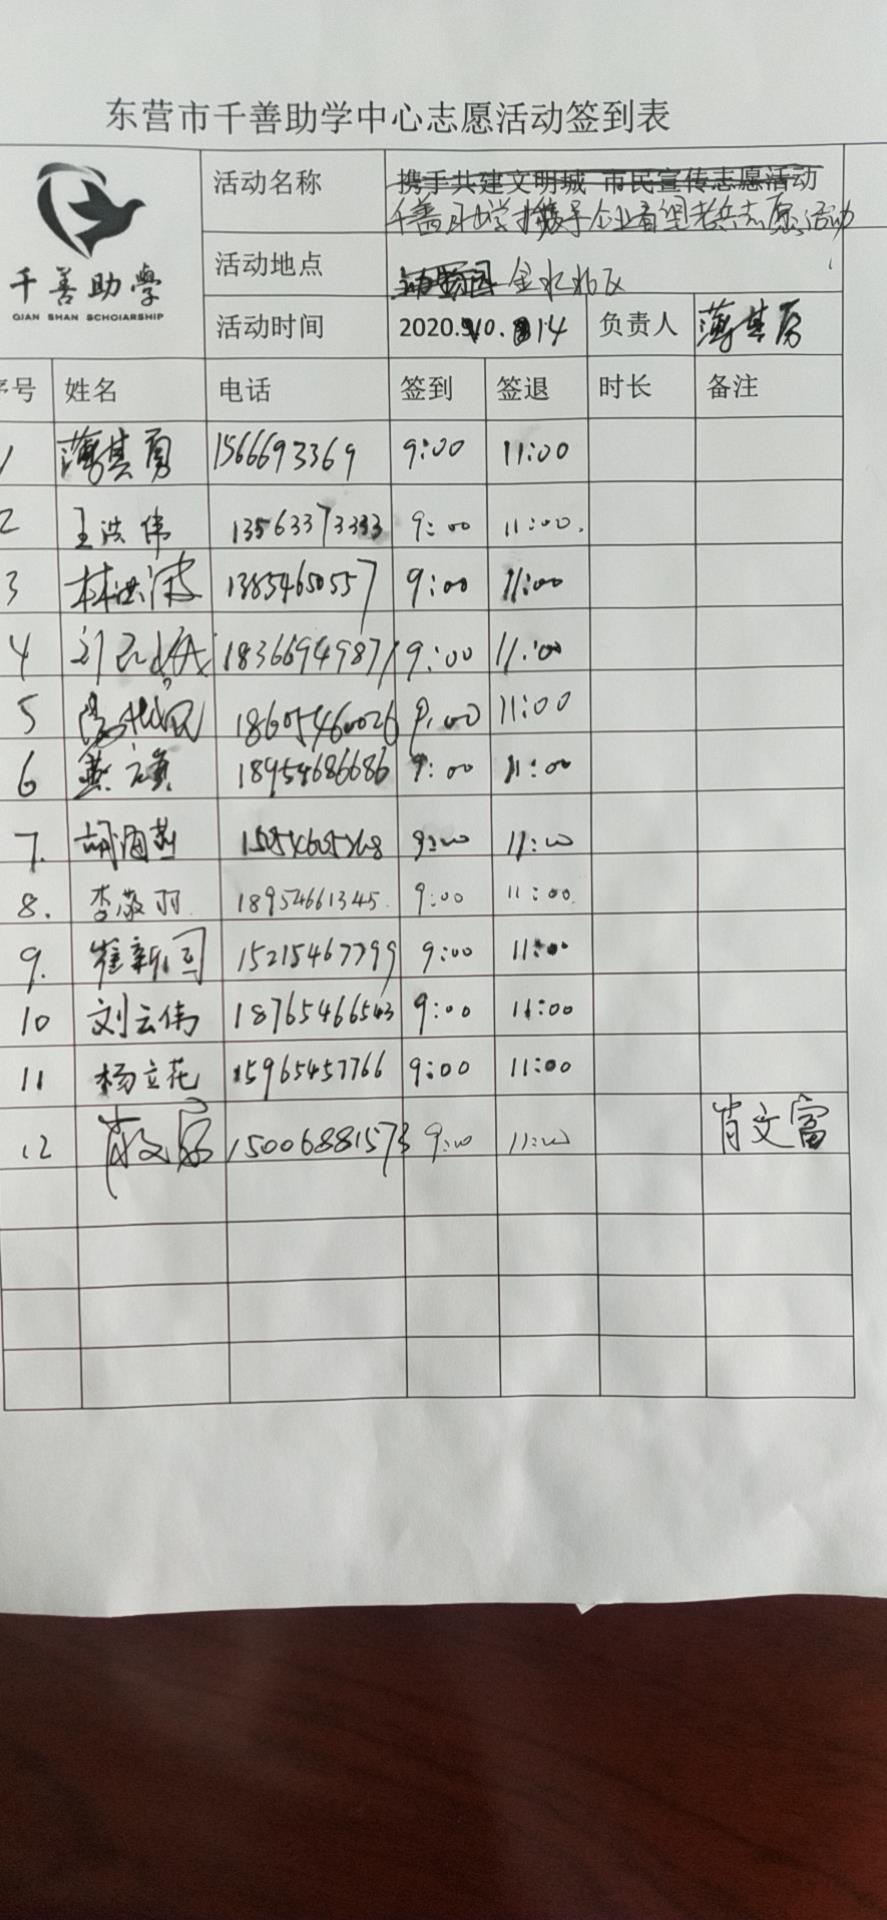 东营市千善助学中心志愿活动签到表
千善助學
QIAN SHAN SCHOLARSHIP
活动名称 携手共建文明城 市民宣传志愿活动
千善助学携手企业看望老兵志愿活动
活动地点 金水北区
活动时间 2020.10.14 负责人 薄其勇
序号 姓名 电话 签到 签退 时长 备注
1 薄其勇 1566693369 9:00 11:00
2 王洪伟 13563373333 9:00 11:00.
3 林洪涛 13854650557 9:00 11:00
4 18366949871 9:00 11:00
5 18605460026 9:00 11:00
6 18954686686 9:00 11:00
7. 胡海燕 9:00 11:00
8. 李敬羽 18954661345. 9:00 11:00
9. 崔新国 15215467799 9:00 11:00
10 刘云伟 18765466543 9:00 11:00
11 杨立花 15965457766 9:00 11:00
12 肖文富 15006881573 9:00 11:00 肖文富